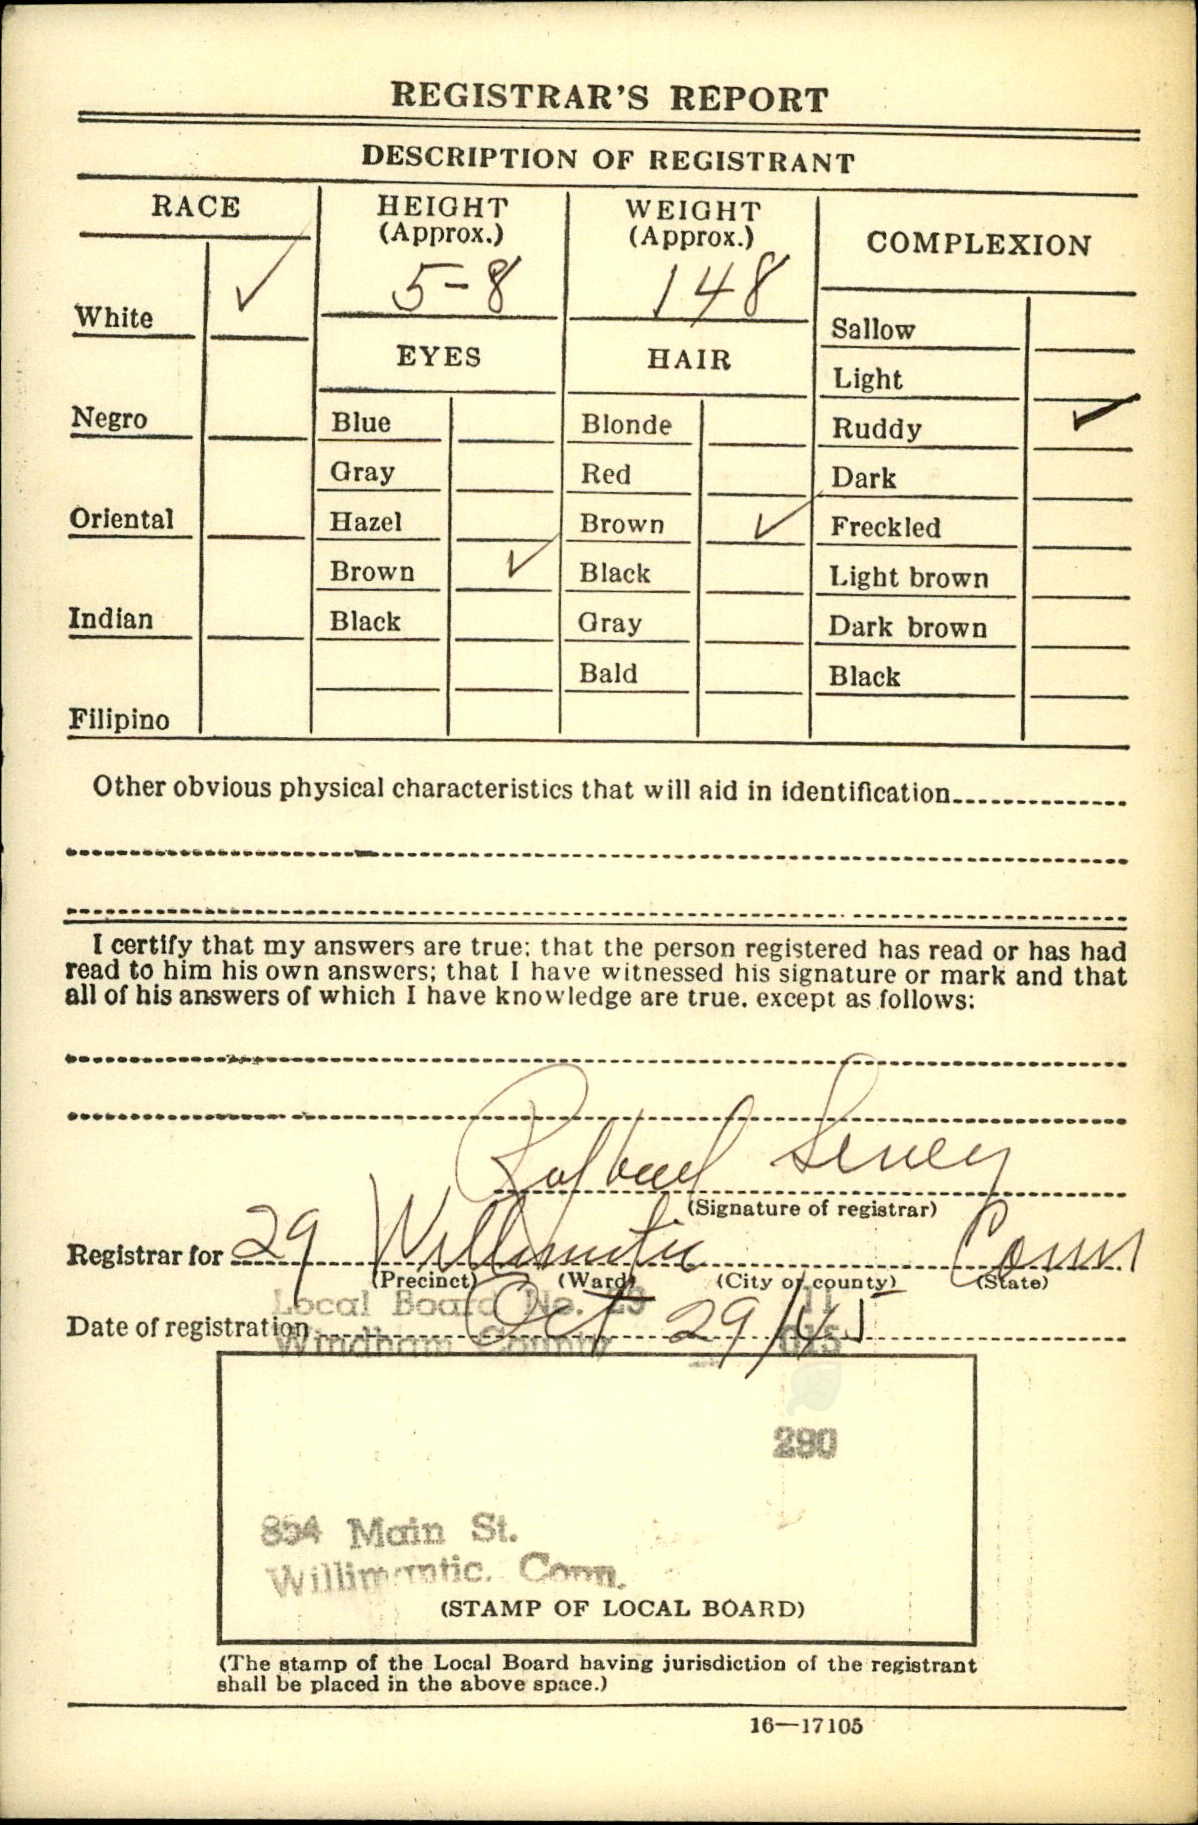 REGISTRAR'S REPORT
DESCRIPTION OF REGISTRANT
RACE
HEIGHT
(Approx.)
5-8
WEIGHT
(Approx.)
148
COMPLEXION
White ✓
Negro
Oriental
Indian
Filipino
EYES
Blue
Gray
Hazel
Brown ✓
Black
HAIR
Blonde
Red
Brown ✓
Black
Gray
Bald
Sallow
Light
Ruddy ✓
Dark
Freckled
Light brown
Dark brown
Black
Other obvious physical characteristics that will aid in identification
I certify that my answers are true; that the person registered has read or has had
read to him his own answers; that I have witnessed his signature or mark and that
all of his answers of which I have knowledge are true, except as follows:
(Signature of registrar)
Registrar for 29 Willimantic Conn
(Precinct) (Ward) (City or county) (State)
Local Board No. 29 11
Date of registration Oct 29/45
Windham County 015
290
854 Main St.
Willimantic, Conn.
(STAMP OF LOCAL BOARD)
(The stamp of the Local Board having jurisdiction of the registrant
shall be placed in the above space.)
16—17105